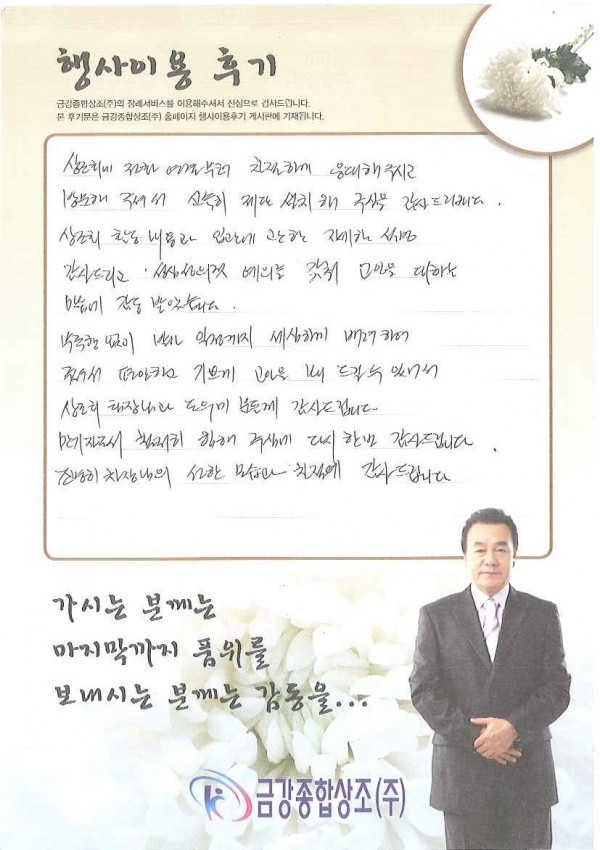 행사이용 후기
금강종합상조(주)의 장례서비스를 이용해주셔서 진심으로 감사드립니다.
본 후기문은 금강종합상조(주) 홈페이지 행사이용후기 게시판에 기재됩니다.
상조회에 전화 연결부터 친절하게 응대해주시고
방문해 주셔서 신속히 제단 설치해 주심을 감사드립니다.
상조회 활동 내용과 입관에 관한 자세한 설명
감사드리고 예의를 갖춰 고인을 대하는
모습에 감동 받았습니다.
부족함 없이 세심하게 배려하여
주셔서 편안하고 기쁘게 고인을 보내 드릴 수 있어서
상조회 도우미 분들께 감사드립니다.
철저히 다시 한번 감사드립니다.
차장님의 선한 모습과 친절에 감사드립니다
가시는 분께는
마지막까지 품위를
보내시는 분께는 감동을...
금강종합상조(주)